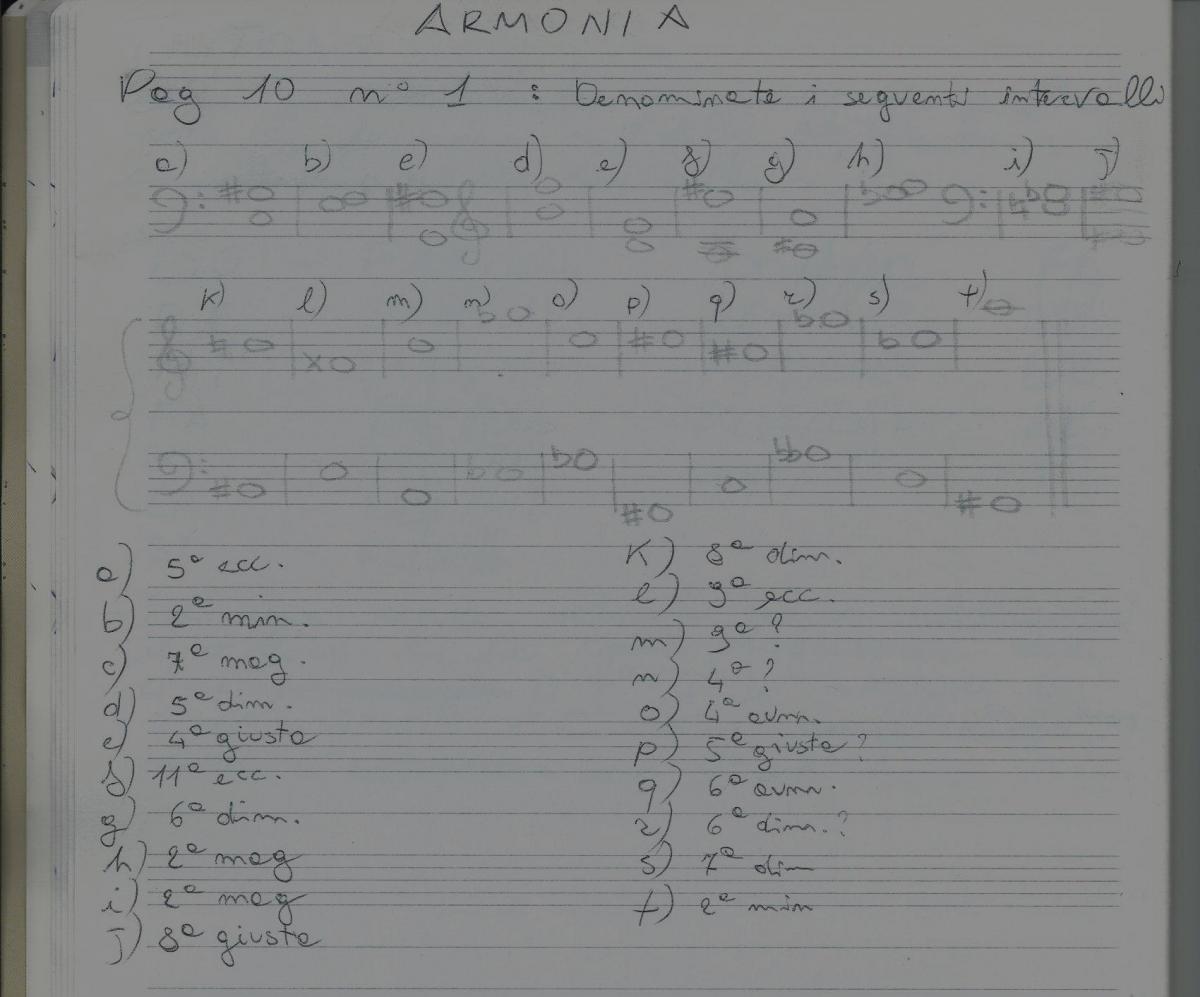 ARMONIA
Pag 10 n° 1 : Denominate i seguenti intervalli
a) b) c) d) e) f) g) h) i) j)
k) l) m) n) o) p) q) r) s) t)
a) 5ª ecc.
b) 2ª min.
c) 7ª mag.
d) 5ª dim.
e) 4ª giusta
f) 11ª ecc.
g) 6ª dim.
h) 2ª mag
i) 2ª mag
j) 8ª giusta
k) 8ª dim.
l) 9ª ecc.
m) 9ª ?
n) 4ª ?
o) 4ª aum.
p) 5ª giusta?
q) 6ª aum.
r) 6ª dim.?
s) 7ª dim
t) 2ª min